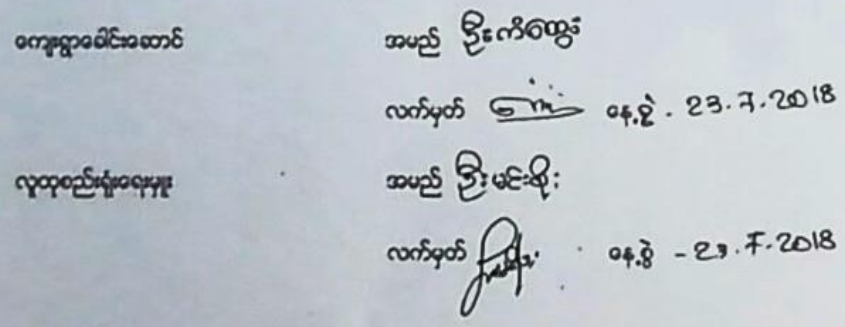 ကျေးရွာခေါင်းဆောင် အမည် ဦးကံထွေး
လက်မှတ် နေ့စွဲ - 23.7.2018
လူထုစည်းရုံးရေးမှူး အမည် ဦးမင်းစိုး
လက်မှတ် နေ့စွဲ - 23.7.2018